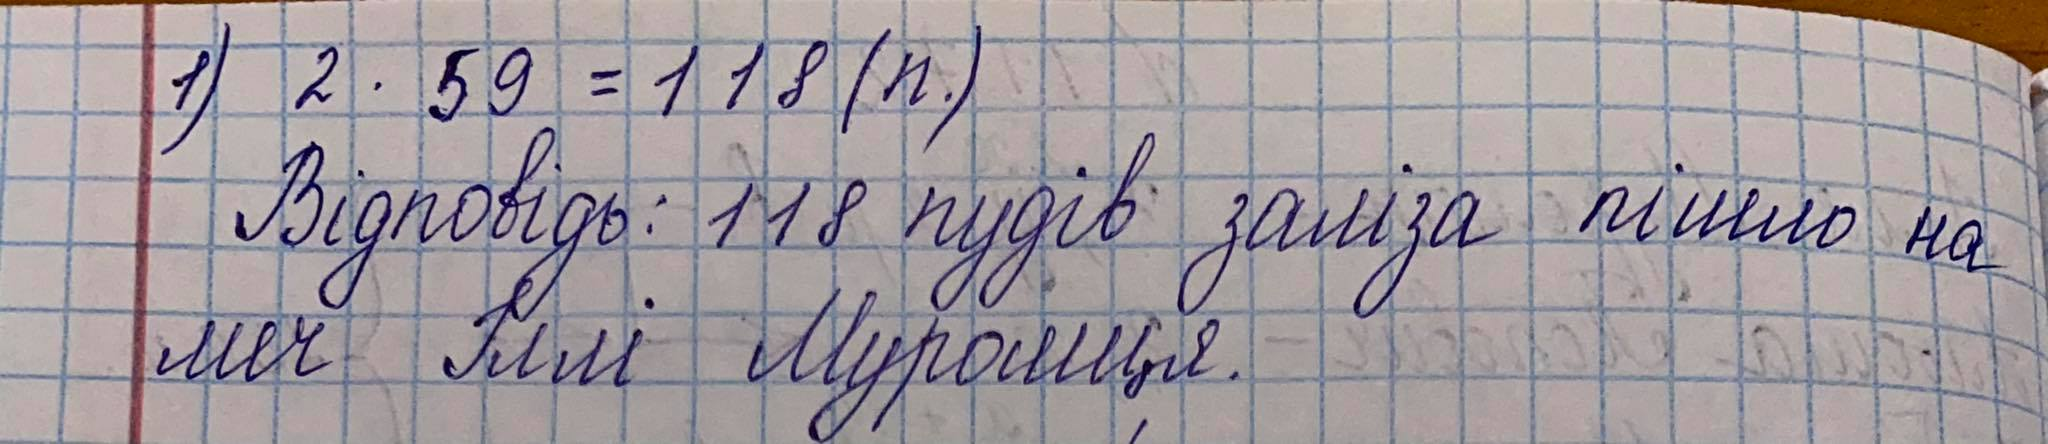 1) 2 · 59 = 118 (п.)
Відповідь: 118 пудів заліза пішло на
меч Іллі Муромиця.